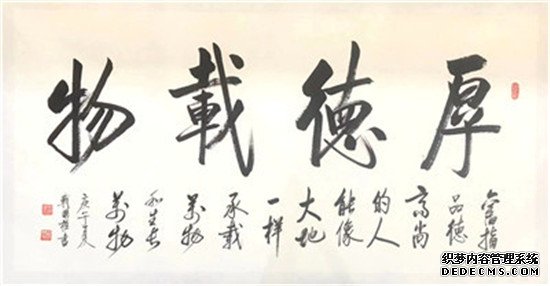 厚德載物
寓指
品德
高尚
的人
能像
大地
一样
承载
萬物
和生长
萬物
庚子夏
织梦内容管理系统
DEDECMS.COM